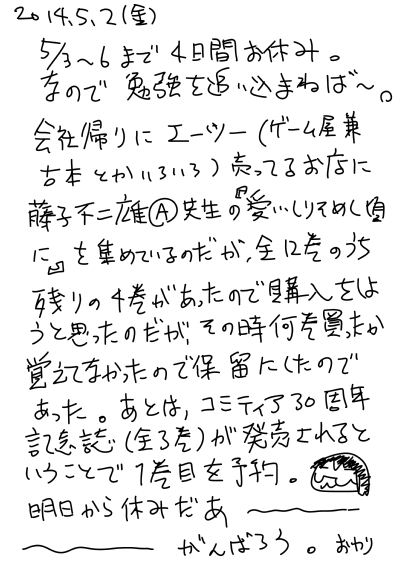 2014.5.2(金)
5/3～6まで4日間お休み。
なので勉強を追い込まねば～。
会社帰りにエーツー(ゲーム屋兼
古本とかいろいろ)売ってるお店に
藤子不二雄Ⓐ先生の『愛しりそめし頃
に』を集めているのだが、全12巻のうち
残りの4巻があったので購入をしよ
うと思ったのだが、その時何巻買ったか
覚えてなかったので保留にしたので
あった。あとは、コミティア30周年
記念誌(全3巻)が発売されると
いうことで1巻目を予約。
明日から休みだあ～
～がんばろう。おわり